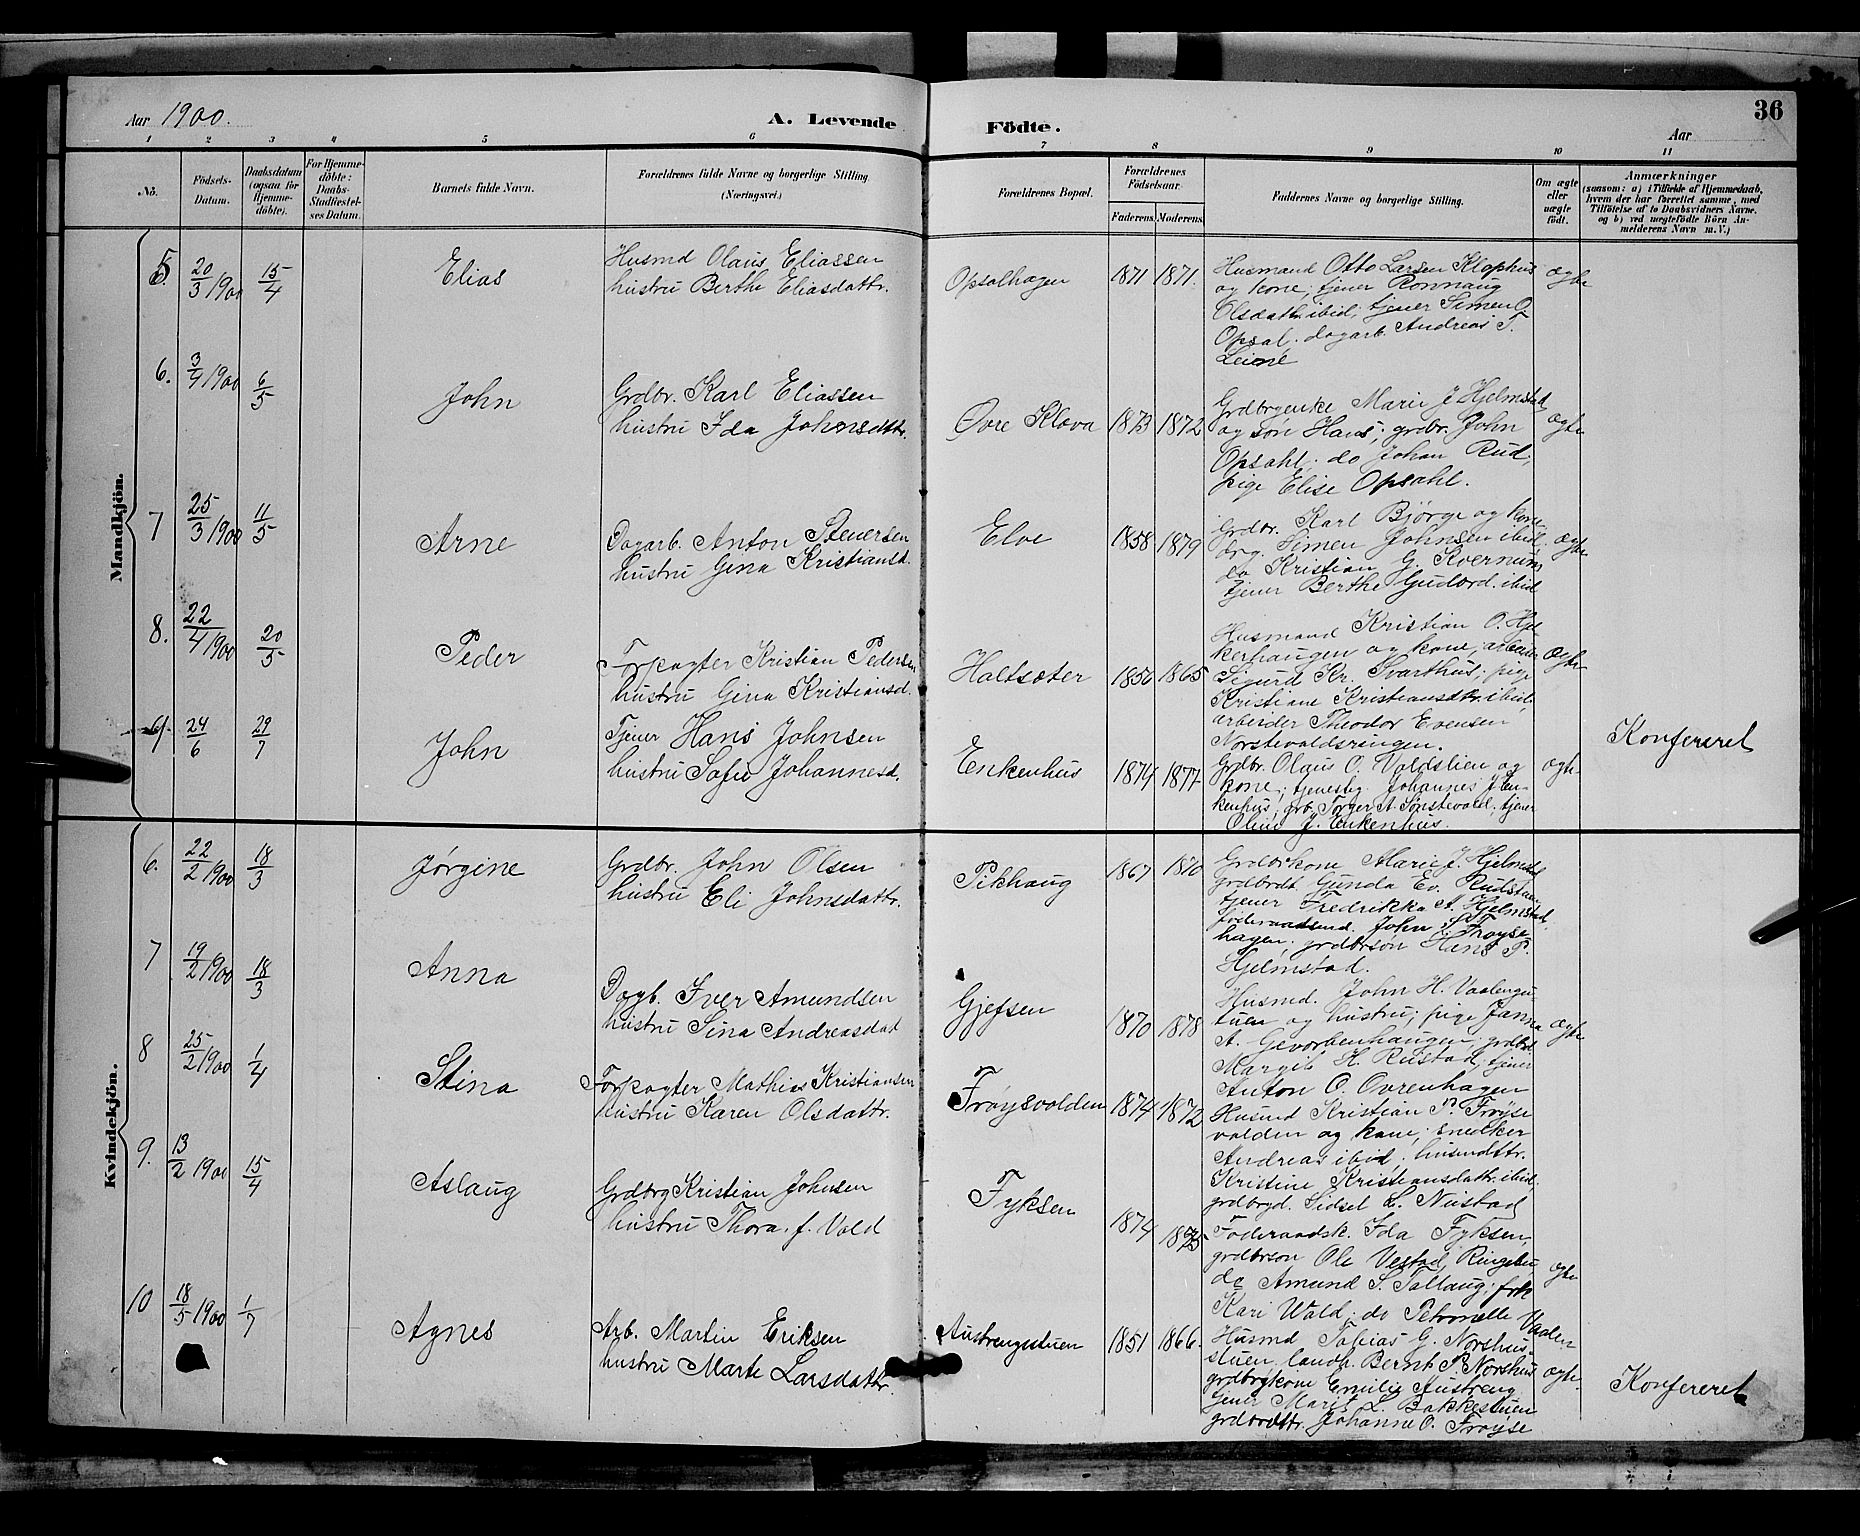 Aar 1900.
A. Levende
Födte.
Aar
36
1 2 3 4 5 6 7 8 9 10 11
No.
Födsels-Datum.
Daabsdatum (ogsaa for Hjemme-döbte).
For Hjemme-döbte: Daabs-Stadfæstel-ses Datum.
Barnets fulde Navn.
Forældrenes fulde Navne og borgerlige Stilling. (Næringsvei.)
Forældrenes Bopæl.
Forældrenes Födselsaar.
Faderens Moderens
Faddernes Navne og borgerlige Stilling.
Om ægte eller uægte födt.
Anmærkninger
(saasom: a) i Tilfælde af Hjemmedaab, hvem der har forrettet samme, med Tilföielse af to Daabsvidners Navne. og b) ved uægtefödte Börn An-melderens Navn m. V.)
Mandkjön.
5. 20/3 1900 15/4 Elias
Husmd Olaus Eliassen
hustru Berthe Eliasdattr.
Opsalhagen 1871 1871.
Husmand Otto Larsen Klophus
og kone; tjener Rønnaug
Olsdattr. ibid; tjener Simen O.
Opsal. dagarb. Andreas T.
Leine
ægte
6. 3/4 1900 6/5 John
Grdbr. Karl Eliassen
hustru Ida Johnsdattr.
Øvre Klova 1873 1872
Grdbrgenke Marie J Hjelmstad
og søn Hans; grdbr. John
Opsahl; do Johan Rud;
pige Elise Opsahl.
ægte
7 25/3 1900 11/5 Arne
Dagarb. Anton Stenersen
hustru Gina Kristiansd.
Elve 1858 1879
Grdbr. Karl Bjørge og kone
drg. Simen Johnsen ibid.
do Kristian G. Kvernum
tjener Berthe Gudbrd. ibid
ægte
8. 22/4 1900 20/5 Peder
Forpagter Kristian Pedersen
hustru Gina Kristiansd.
Haltsæter 1856 1865
Husmand Kristian O. Hol-
kerhaugen og kone; arbeider
Sigurd Kr. Svarthus; pige
Kristiane Kristiansdtr. ibid,
arbeider Theodor Evensen
ægte
24/6 29/7 John
Tjener Hans Johnsen
hustru Sofie Johannesd.
Enkenhus 1874 1877
Grdbr. Olaus O. Voldslien og
kone; tjenestg. Johannes J En-
kenhus; grb. Torger A. Sønstevold; tjener
J. Enkenhus.
ægte
Konfereret
Kvindekjön.
6. 22/2 1900 18/3 Jørgine
Grdbr. John Olsen
hustru Eli Johnsdattr.
Pikhaug 1867 1870
Grdbrkone Marie J. Hjelmstad
grdbrdt. Gunda Ev. Rudstuen
tjener Fredrikka A. Hjelmstad
føderaadsmd. John S. Frøyse-
hagen; grdbrsøn Hans P.
Hjelmstad.
7 19/2 1900 18/3 Anna
Dagb. Iver Amundsen
hustru Sina Andreasdat
Gjefsen 1870 1878
Husmd. John H. Vaalengs-
tuen og hustru; pige Janna
A. Gevorbenhaugen; grdbrd.
Margit H. Rustad, tjener
Anton O. Ovrenhagen
ægte
8 25/2 1900 1/4 Stina
Forpagter Mathias Kristiansen
hustru Karen Olsdattr.
Frøysvolden 1874 1872
Husmd Kristian P. Frøyse
volden og kone; snedker
Andreas ibid. husmdttr.
Kristine Kristiansdattr. ibid;
grdbrgd. Sidsel L. Nustad
9. 13/2 1900 15/4 Aslaug
Grdbrg Kristian Johnsen
hustru Thora f. Vold
Fyksen 1874 1875
Føderaadsk. Ida Fyksen,
grdbrsøn Ole Vestad, Ringebu,
do Amund S. Tallaug; frk
Kari Wald; do Petronelle Vaalen-
ægte
10 18/5 1900 1/7 Agnes
Arb. Martin Eriksen
hustru Marte Larsdattr.
Austrengsstuen 1851 1866.
Husmd Tobias G. Norshus-
stuen, landh. Bernt P. Norshus
grdbrgkone Emilie Austreng
tjener Marit L. Bakkestuen
grdbrdttr. Johanne O. Frøyse
ægte.
Konfereret